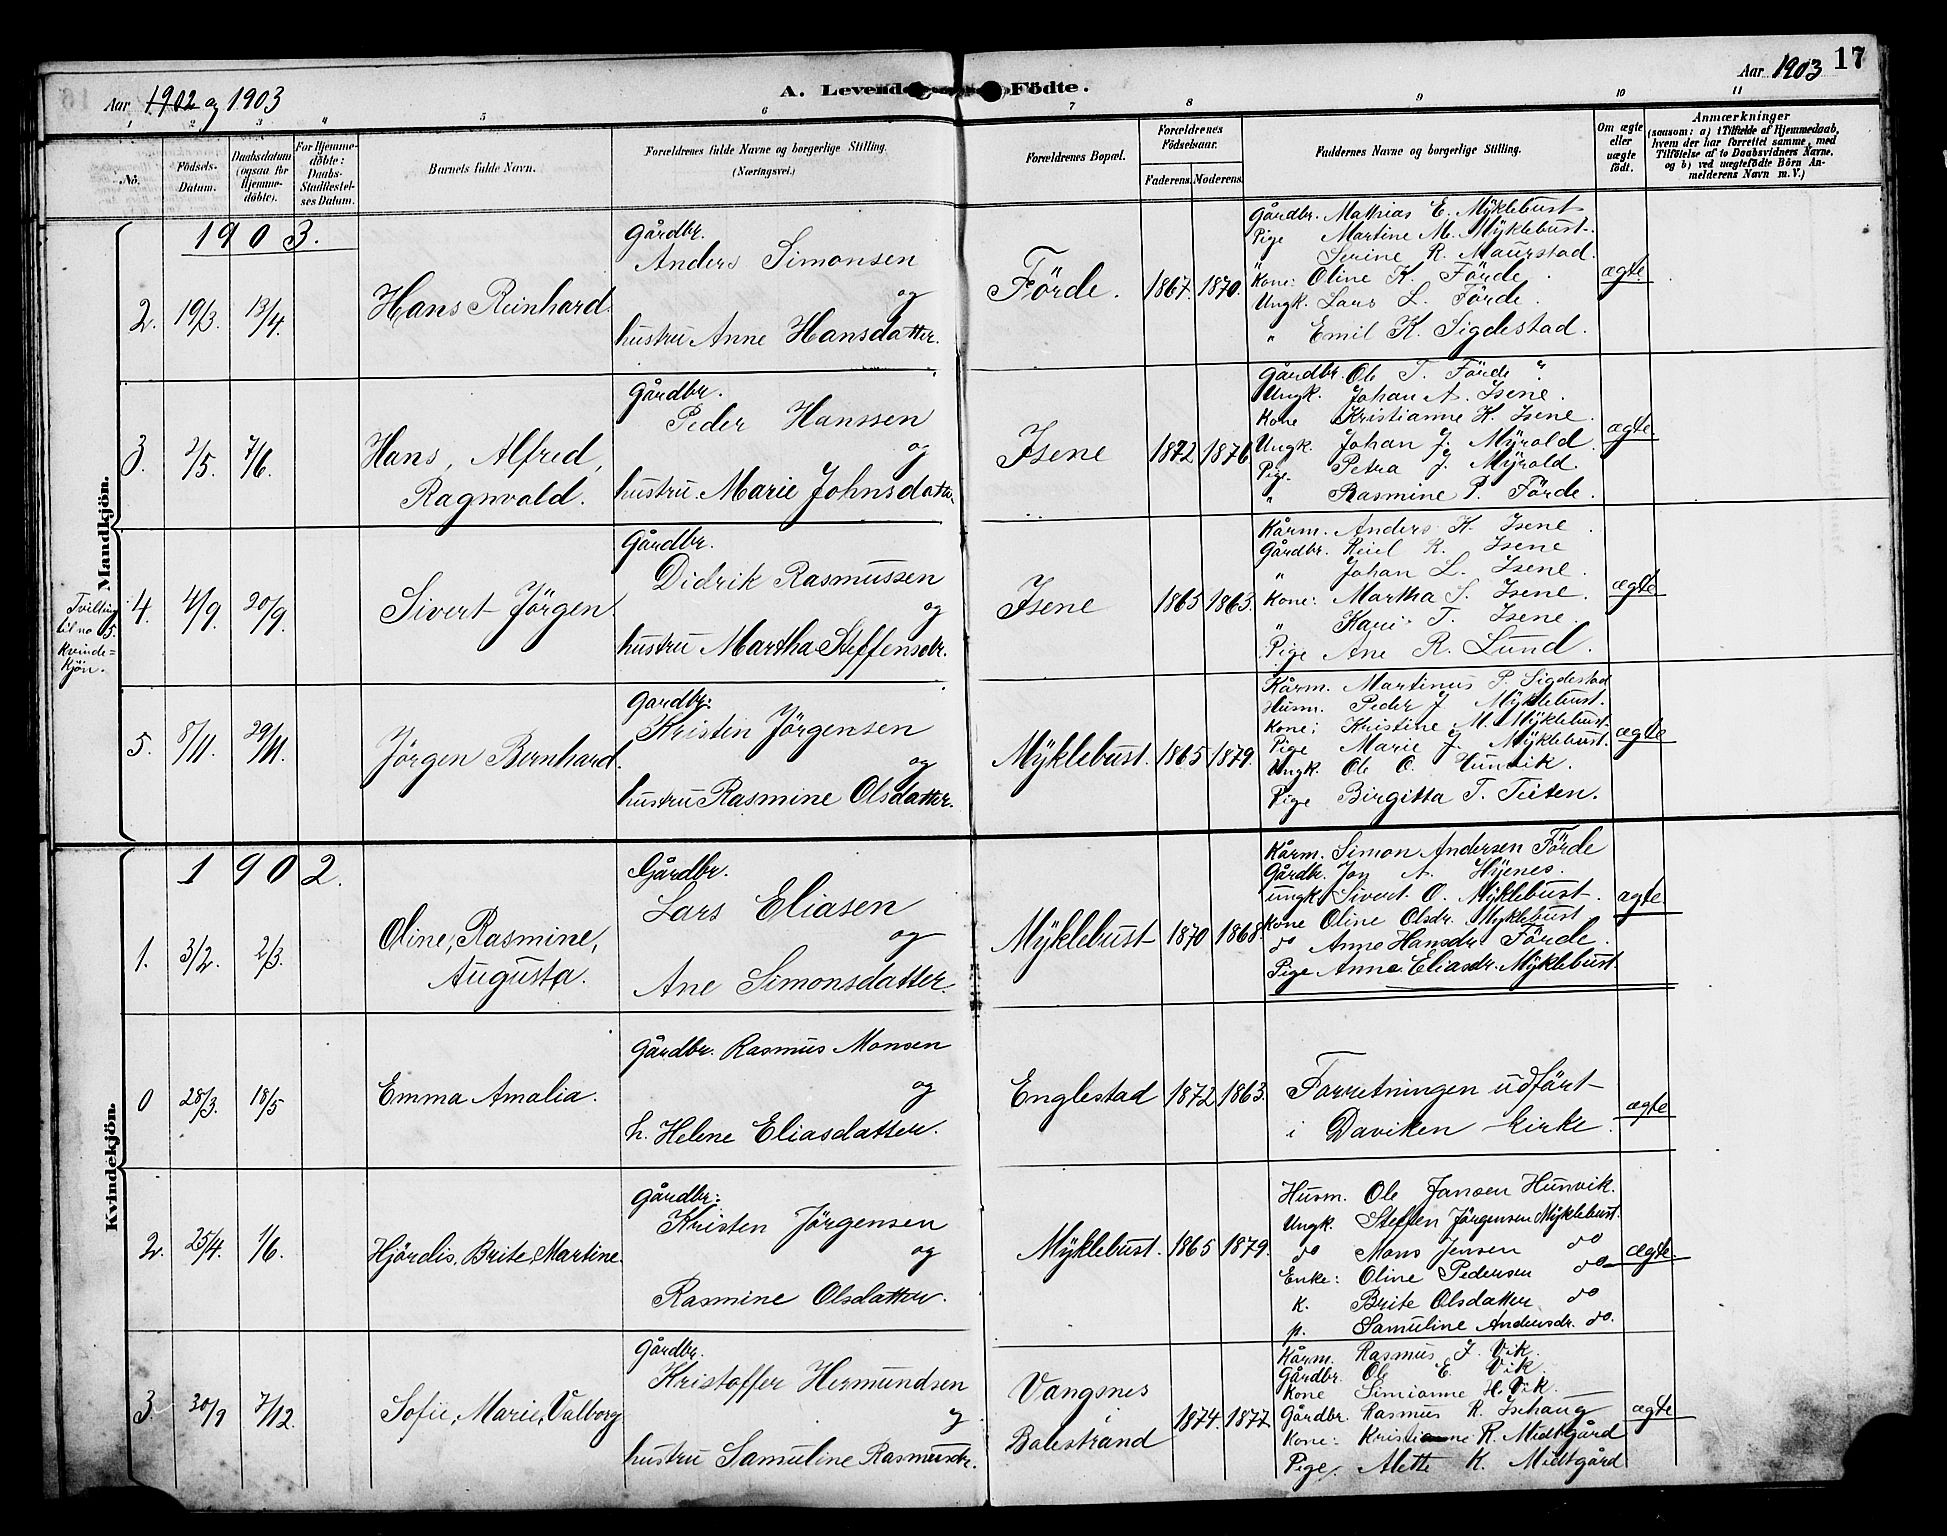 Aar 1902 og 1903
A. Levende Födte.
Aar 1903 17
1 2 3 4 5 6 7 8 9 10 11
No.
Födsels-
Datum.
Daabsdatum
(ogsaa for
Hjemme-
döbte).
For Hjemme-
döbte:
Daabs-
Stadfæstel-
ses Datum.
Barnets fulde Navn.
Forældrenes fulde Navne og borgerlige Stilling.
(Næringsvei.)
Forældrenes Bopæl.
Forældrenes
Födselsaar.
Faderens. Moderens.
Faddernes Navne og borgerlige Stilling.
Om ægte
eller
uægte
födt.
Anmærkninger
(saasom: a) i Tilfælde af Hjemmedaab,
hvem der har forrettet samme, med
Tilföielse af to Daabsvidners Navne,
og b) ved uægtefödte Börn An-
melderens Navn m. V.)
Mandkjön.
1903.
2. 19/3. 13/4
Hans Reinhard.
Gårdbr.
Anders Simonsen
og
hustru Anne Hansdatter.
Förde. 1867. 1870.
Gårdbr. Mathias E. Mÿklebust
Pige Martine M. Mÿklebust.
" Serine R. Maurstad.
Kone: Oline K. Förde.
Ungk. Lars L. Förde.
" Emil K. Sigdestad.
ægte
3. 2/5. 7/6.
Hans, Alfred,
Ragnvald.
Gårdbr.
Peder Hanssen
og
hustru. Marie Johnsdatter.
Isene 1872 1876
Gårdbr. Ole T. Förde
Ungk. Johan A. Isene.
Kone Kristianne K. Isene.
Ungk. Johan J. Mÿrold.
Pige. Petra J. Mÿrold.
" Rasmine P. Förde.
ægte
Tvilling
til no 5.
Kvinde=
Kjön.
4. 4/9. 20/9.
Sivert Jörgen
Gårdbr.
Didrik Rasmussen
og
hustru Martha Steffensdtr.
Isene 1865 1863.
Kårm. Anders K. Isene.
Gårdbr. Reiel R. Isene
" Johan L. Isene.
Kone: Martha S. Isene.
" Kari T. Isene.
Pige Ane R. Lund.
ægte
5. 8/11. 29/11.
Jörgen Bernhard.
Gardbr:
Kristen Jörgensen
og
hustru Rasmine Olsdatter.
Mÿklebust. 1865 1879.
Kårm. Martinus P. Sigdestad
Husm. Peder J. Mÿklebust.
Kone: Kristine M. Mÿklebust.
Pige Marie J. Mÿklebust.
Ungk. Ole O. Hunvik.
Pige Birgitta T. Teiten.
ægte
Kvindekjön.
1902.
1. 3/2. 2/3.
Oline, Rasmine,
Augusta.
Gårdbr.
Lars Eliasen
og
Ane Simonsdatter.
Mÿklebust 1870 1868
Kårm. Simon Andersen Förde
Gårdbr. Jon A. Hÿenes.
ungk. Sivert O. Mÿklebust.
Kone Oline Olsdr. Mÿklebust
do Anne Hansdr. Förde.
Pige Anna Eliasdr. Mÿklebust.
ægte
0 28/3. 18/5
Emma Amalia.
Gårdbr. Rasmus Monsen
og
h. Helene Eliasdatter.
Englestad 1872 1863.
Forretningen udfört
i Daviken kirke.
ægte
2. 25/4. 1/6.
Hjördis, Brite, Martine.
Gårdbr:
Kristen Jörgensen
og
Rasmine Olsdatter.
Mÿklebust. 1865 1879.
Husm. Ole Jansen Hunvik.
Ungk. Steffen Jörgensen Mÿklebust.
do Mons Jensen do
Enke: Oline Pedersen do
k. Brite Olsdatter do
p. Samuline Andersdr. do.
ægte.
3. 30/9 7/12.
Sofie, Marie, Valborg
Gårdbr.
Kristoffer Hermundsen
og
hustru Samuline Rasmusdtr.
Vangsnes
i
Balestrand
1874. 1877.
Kårm. Rasmus J. Vik.
Gårdbr. Ole E. Vik.
Kone Simianne H. Vik.
Gårdbr. Rasmus R. Isehaug
Kone: Kristianne R. Midtgård
Pige. Alette K. Midtgård
ægte